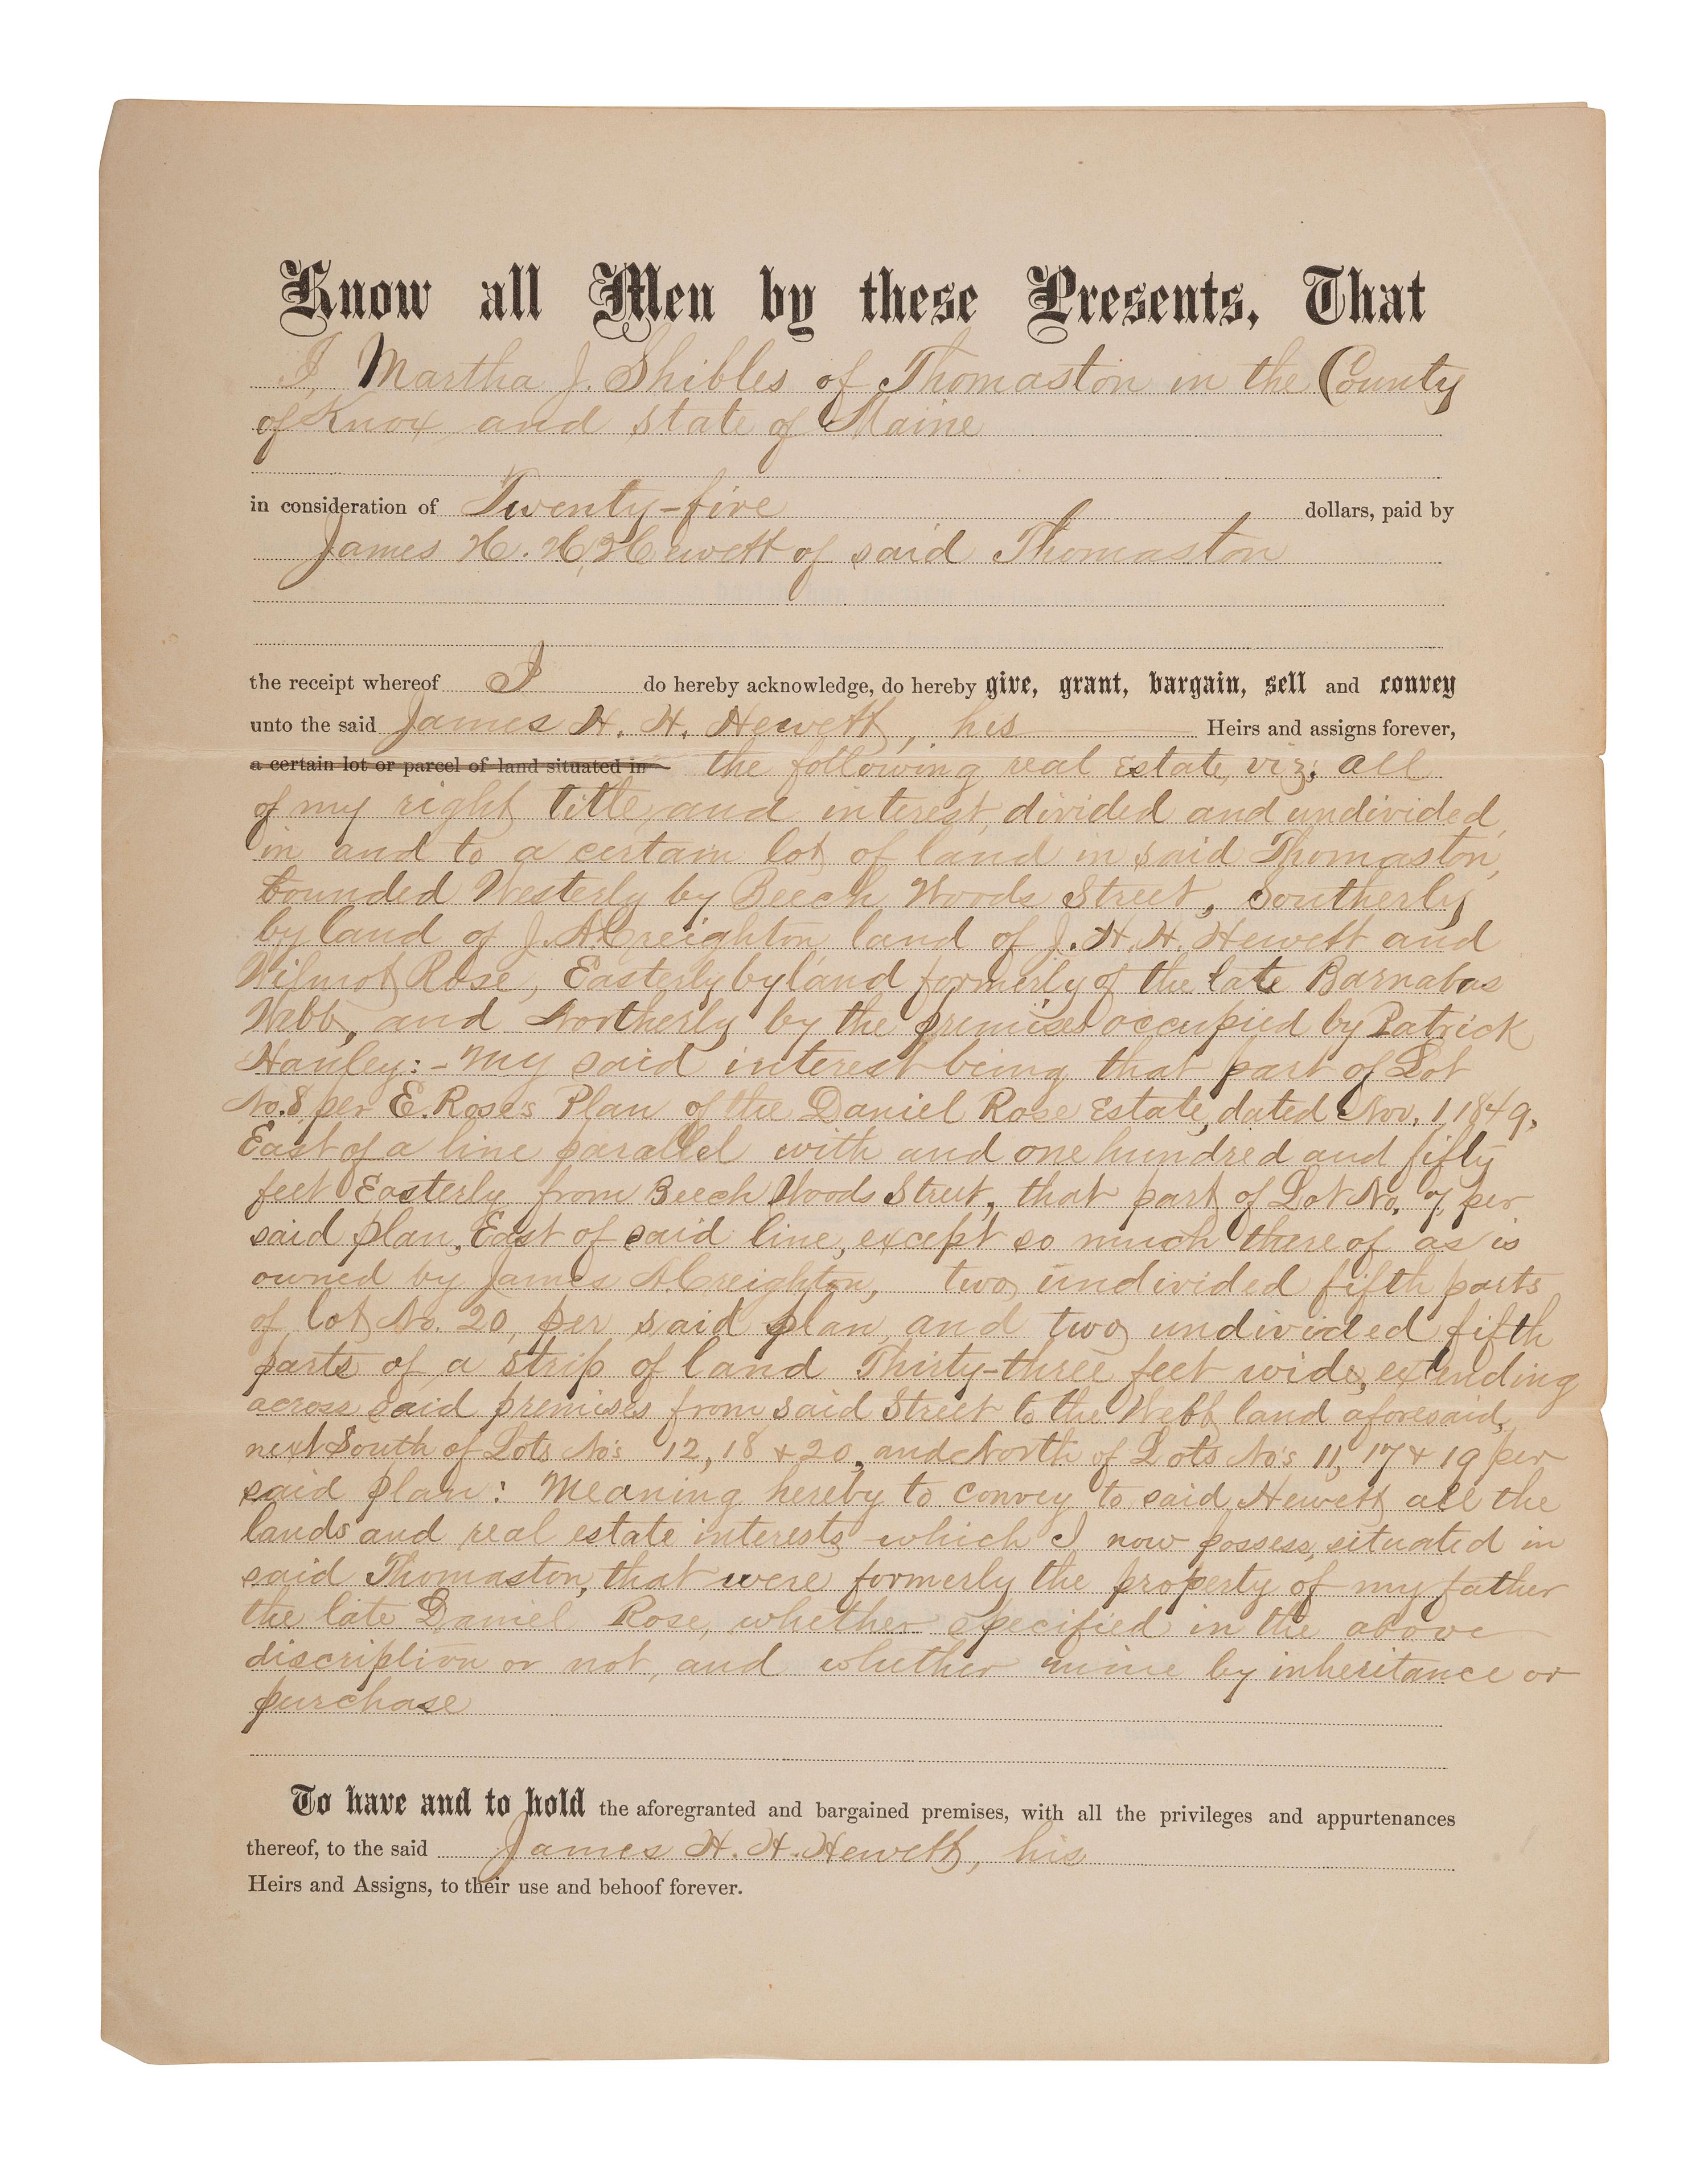 Know all Men by these Presents, That
I, Martha J. Shibles of Thomaston in the County
of Knox and state of Maine
in consideration of Twenty-five dollars, paid by
James H. H. Hewett of said Thomaston
the receipt whereof I do hereby acknowledge, do hereby give, grant, bargain, sell and convey
unto the said James H. H. Hewett, his Heirs and assigns forever,
a certain lot or parcel of land situated in the following real Estate, viz; all
of my right title and interest, divided and undivided,
in and to a certain lot of land in said Thomaston,
bounded Westerly by Beech Woods Street, Southerly
by land of J. A. Creighton, land of J. H. H. Hewett and
Wilmot Rose, Easterly by land formerly of the late Barnabas
Webb, and Northerly by the premises occupied by Patrick
Hanley:- My said interest being that part of Lot
No. 8, per E. Rose's Plan of the Daniel Rose Estate, dated Nov. 1, 1849,
East of a line parallel with and one hundred and fifty
feet Easterly from Beech Woods Street, that part of Lot No. 7, per
said plan, East of said line, except so much there of as is
owned by James A. Creighton, two undivided fifth parts
of lot No. 20, per said plan, and two undivided fifth
parts of a strip of land Thirty-three feet wide, extending
across said premises from said Street to the Webb land aforesaid,
next South of Lots No's 12, 18 & 20, and North of Lots No's 11, 17 & 19 per
said plan: Meaning hereby to convey to said Hewett all the
lands and real estate interests which I now possess, situated in
said Thomaston, that were formerly the property of my father
the late Daniel Rose, whether specified in the above
discription or not, and whether mine by inheritance or
purchase
To have and to hold the aforegranted and bargained premises, with all the privileges and appurtenances
thereof, to the said James H. H. Hewett, his
Heirs and Assigns, to their use and behoof forever.